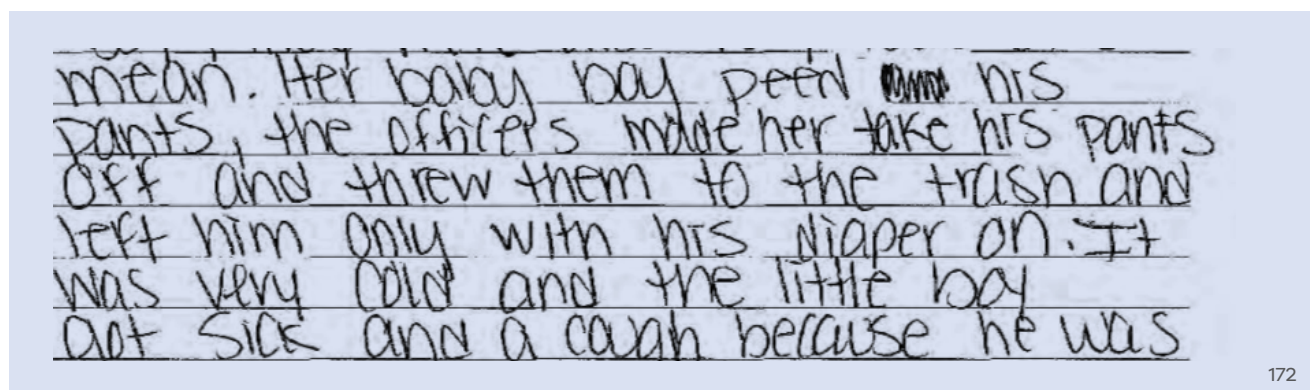 mean. Her baby boy peed his
pants, the officers made her take his pants
off and threw them to the trash and
left him only with his diaper on. It
was very cold and the little boy
got sick and a cough because he was
172